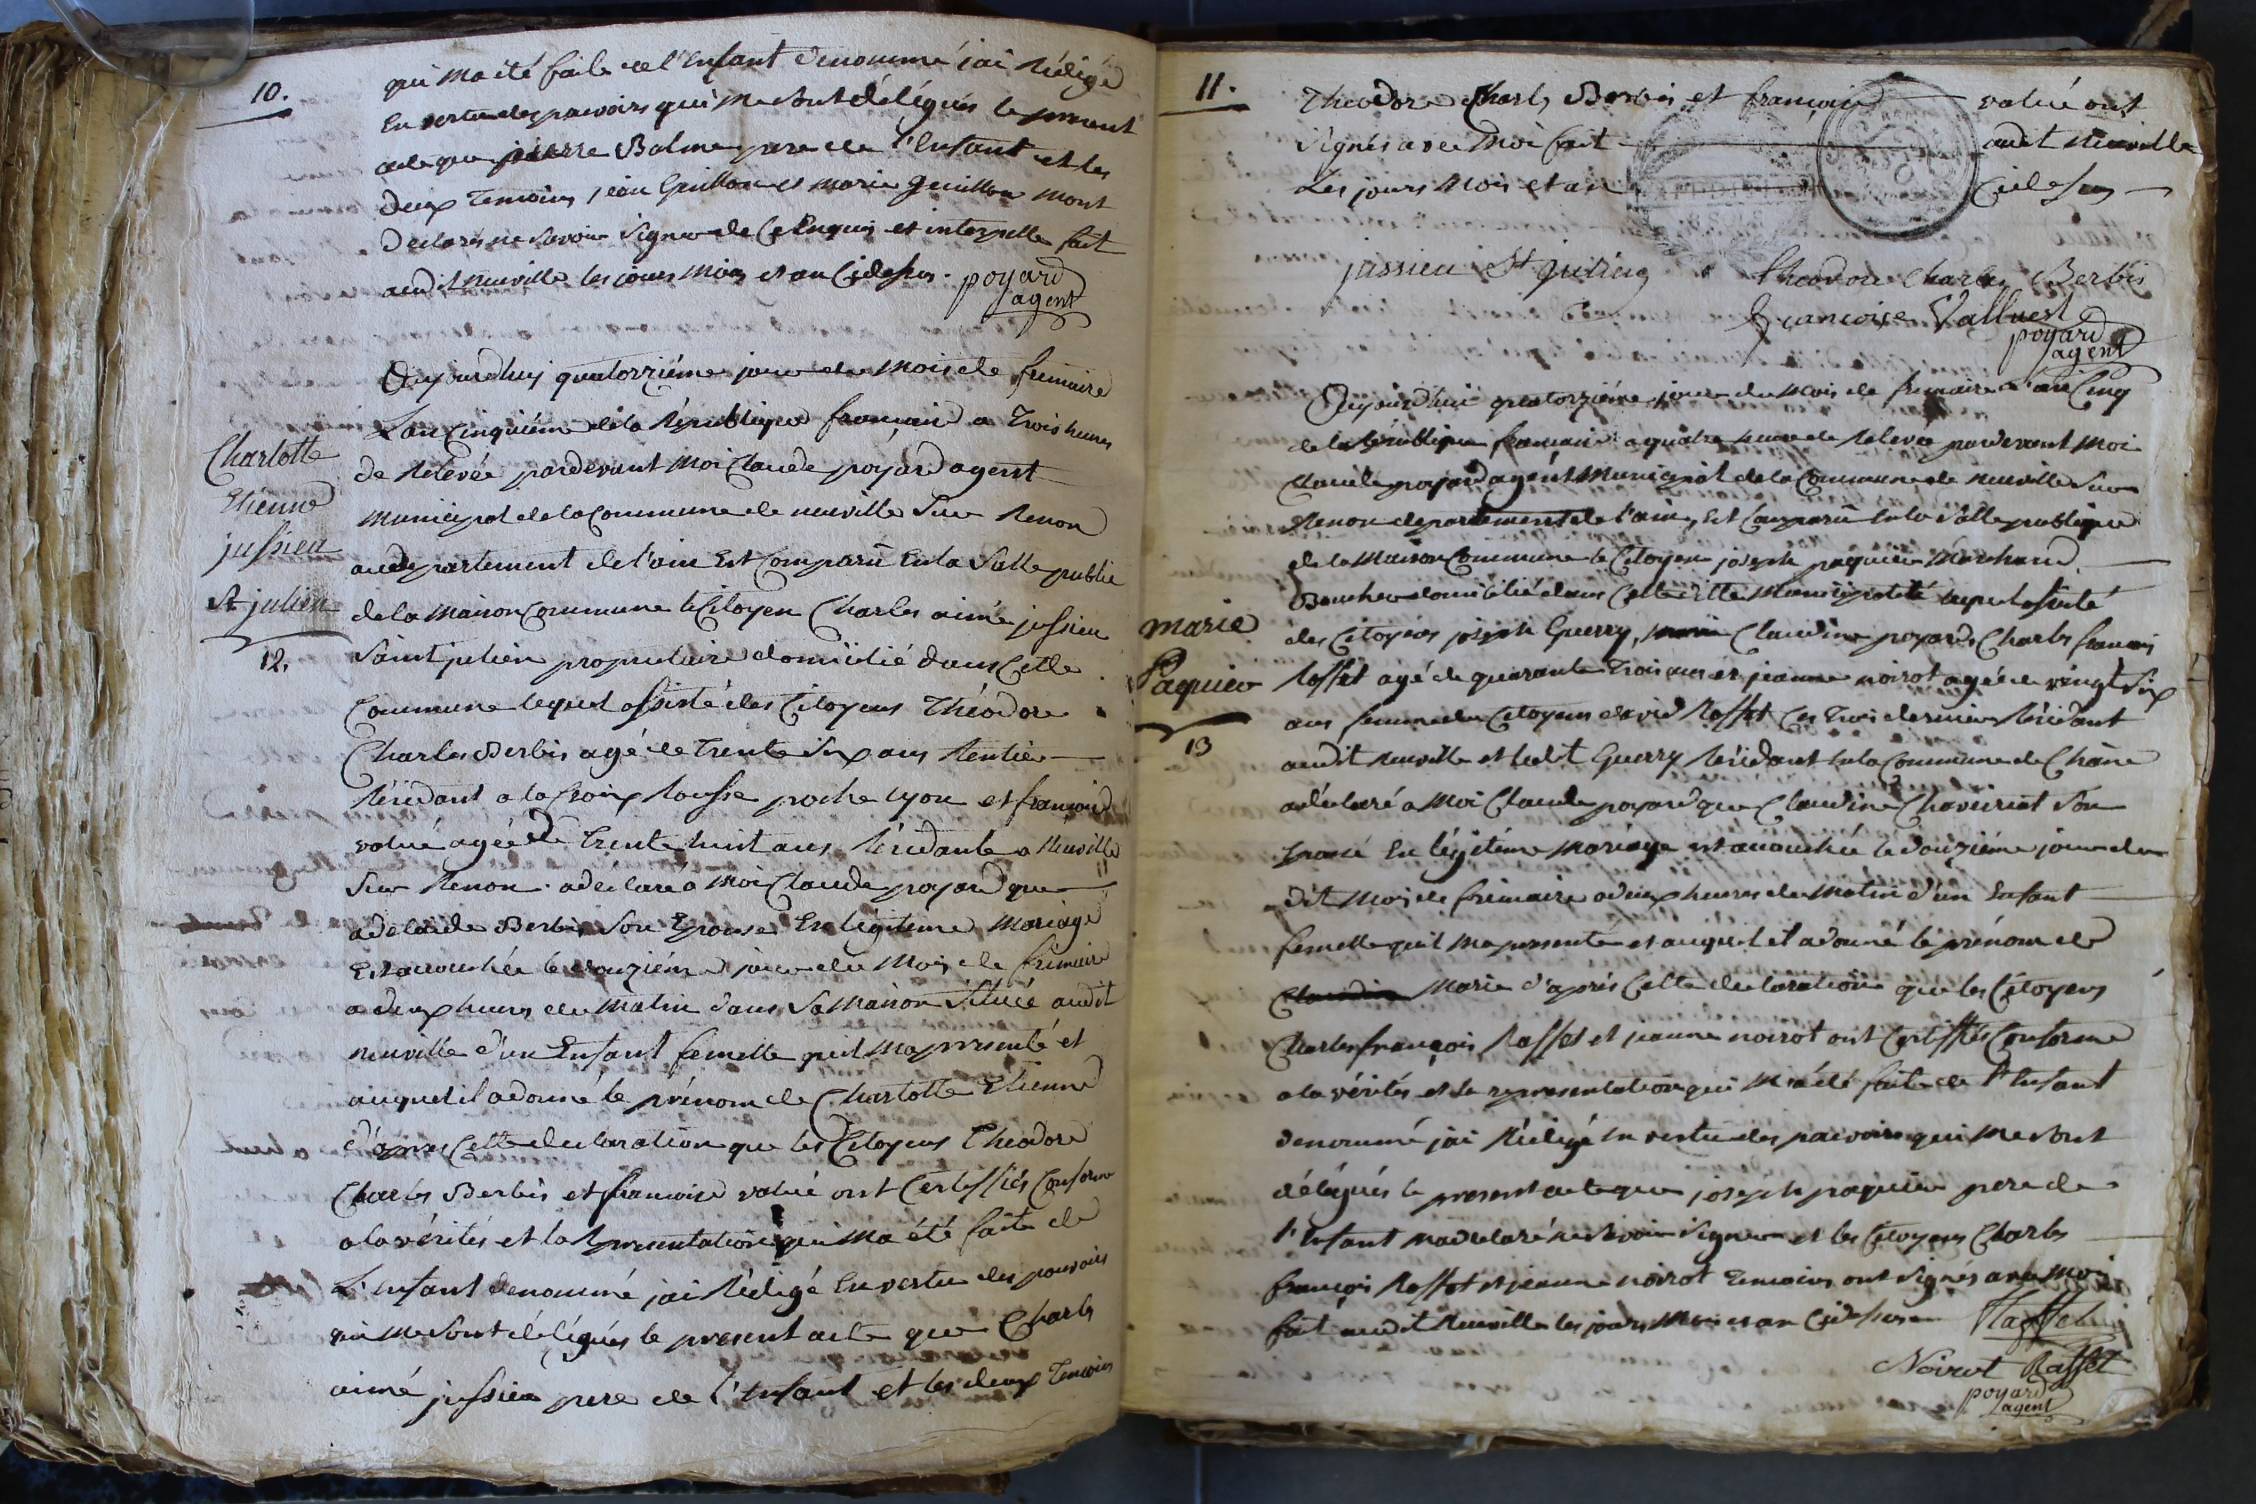 10.
qui ma été faite de l'enfant denommé jai Rédigé
En vertu des pouvoirs qui me sont délégués le present
acte que pierre Balme pere de l'enfant et les
deux Temoins jean Guillon et marie guillon mont
declarés ne savoir signer de ce Enquis et interpellés fait
audit neuville les jours mois et an Cidessus. poyard
agent
Aujourdhuy quatorzième jour du mois de frimaire
L'an Cinquième de la République française a Trois heures
de Relevée pardevant Moi Claude poyard agent
municipal de la Commune de neuville sur Renon
au departement de l'ain Est Comparu En la Salle public
de la maison Commune le Citoyen Charles aimé jussieu
Saint julien propriétaire domicilié dans Cette
Commune lequel assisté des Citoyens Théodore
Charles Berbis agé de Trente six ans Rentier
Résidant a la Croix Rousse proche lyon et françoise
valué agée de Trente huit ans Résidante a Neuville
Sur Renon. a declaré a Moi Claude poyard que
adelaide Berbis Son Epouse En légitime Mariage
Est accouchée le douzième jour du Mois de frimaire
a deux heures du matin dans Sa Maison Située audit
neuville d'un Enfant femelle quil ma presenté et
auquel il a donné le prénom de Charlotte Etienne
d'apres Cette declaration que les Citoyens Theodore
Charles Berbis et françoise valué ont Certiffiés Conforme
a la vérités et la Representation qui ma été faite de
L'enfant denommé jai Rédigé En vertu des pouvoirs
qui me Sont délégués le present acte que Charles
aimé jussieu pere de l'enfant et les deux Temoins
Charlotte
Etienne
jussieu
St julien
12.
11.
Theodore Charles Berbis et françoise valué ont
Signés avec Moi fait audit Neuville
Les jours Mois et an Cidessus
jussieu St Julien Theodore Charles Berbis
françoise Valluest
poyard
agent
Aujourdhui quatorzième jour du mois de frimaire l'an Cinq
de la République française a quatre heures de Relevée pardevant Moi
Claude poyard agent Municipal de la Commune de neuville Sur
Renon departement de l'ain, Est Comparu En la Salle publique
de la Maison Commune le Citoyen joseph paquier Marchand
Boucher domicilié dans Cette Municipalité lequel assisté
des Citoyens joseph Guerry, Claudine poyard, Charles françois
Raffet agé de quarante Trois ans et jeanne noirot agée de vingt Six
ans femme du Citoyen david Raffet Ces Trois derniers Résidant
audit Neuville et ledit Guerry Résidant En la Commune de Chane
a déclaré a Moi Claude poyard que Claudine Chaveiriat Son
Epouse En légitime Mariage est accouchée le douzième jour du
dit Mois de frimaire a deux heures du Matin d'un Enfant
femelle quil ma presenté et auquel il a donné le prénom de
Claudine Marie d'après Cette declaration que les Citoyens
Charles françois Raffet et jeanne noirot ont Certiffiés Conforme
a la vérités et la representation qui M'a été faite de l'Enfant
denommé jai Rédigé En vertu des pouvoirs qui me Sont
délégués le present acte que joseph paquier pere de
l'Enfant ma declaré ne Savoir Signer et les Citoyens Charles
françois Raffet et jeanne noirot Temoins ont Signés avec Moi
fait audit Neuville les jours Mois et an Cidessus Raffet
Noirot Raffet
poyard
agent
marie
Paquier
13